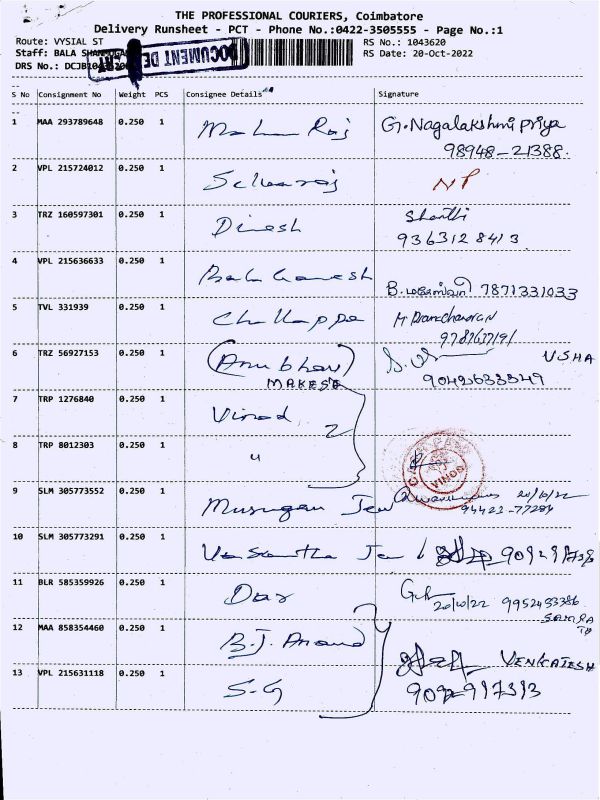 THE PROFESSIONAL COURIERS, Coimbatore
Delivery Runsheet - PCT - Phone No.:0422-3505555 - Page No.:1
Route: VYSIAL ST
RS No.: 1043620
Staff: BALA
RS Date: 20-Oct-2022
DRS No.:
S No Consignment No Weight PCS Consignee Details Signature
1 MAA 293789648 0.250 1 G.Nagalakshmi priya
98948-21388.
2 VPL 215724012 0.250 1 Selvaraj NP
3 TRZ 160597301 0.250 1 Dinesh Shanthi
9363128413
4 VPL 215636633 0.250 1 Bala Ganesh
7871331033
5 TVL 331939 0.250 1 Chellappa M Ramachandran
6 TRZ 56927153 0.250 1 (Anubhav) USHA
7 TRP 1276840 0.250 1 Vinod 2
8 TRP 8012303 0.250 1 "
VINOD
9 SLM 305773552 0.250 1 Murugan Jew 20/10/22
94423-77284
10 SLM 305773291 0.250 1 Vasantha Jew
11 BLR 585359926 0.250 1 Das
20/10/22
12 MAA 858354460 0.250 1 B.J. Anand
VENKATESH
13 VPL 215631118 0.250 1 S-G